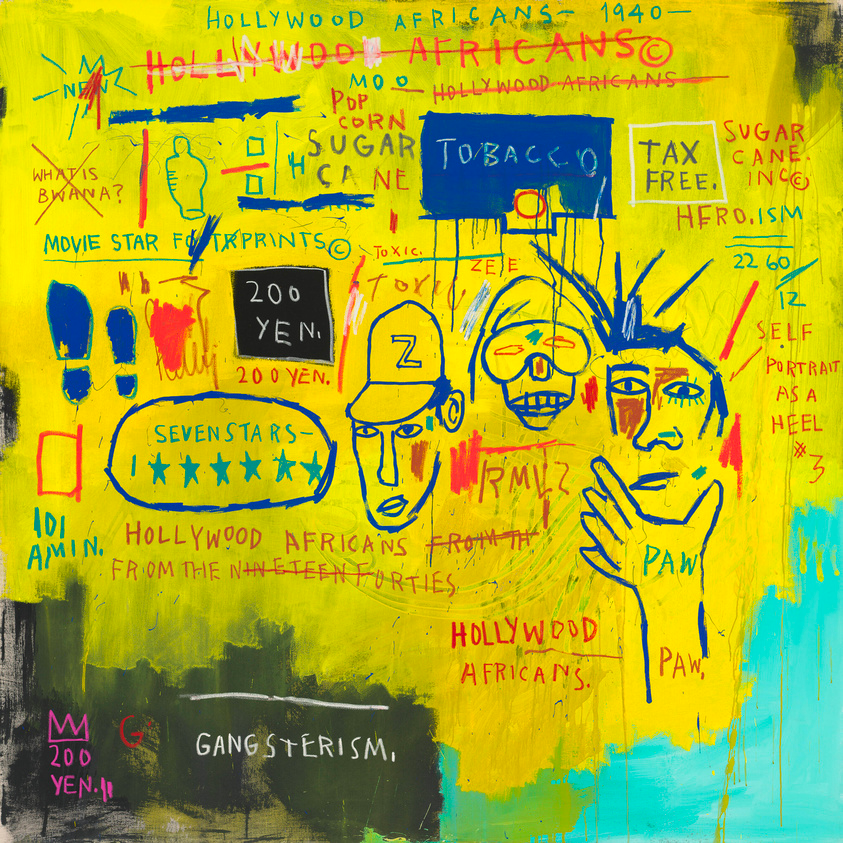 HOLLYWOOD AFRICANS- 1940-
HOLLYWOOD AFRICANS©
NEW
MOO
HOLLYWOOD AFRICANS
POP
CORN
SUGAR
CANE
H
TOBACCO
TAX
FREE.
SUGAR
CANE.
INC©
WHAT IS
BWANA?
HERO.ISM
MOVIE STAR FOOTPRINTS©
TOXIC.
ZEE
TOXIC
22 60
12
200
YEN.
200 YEN.
SELF
PORTRAIT
AS A
HEEL
#3
Z
SEVEN STARS-
1
RMLZ
IDI
AMIN.
HOLLYWOOD AFRICANS FROM TH
FROM THE NINETEEN FORTIES
PAW
HOLLYWOOD
AFRICANS.
PAW.
GANGSTERISM.
G
200
YEN.